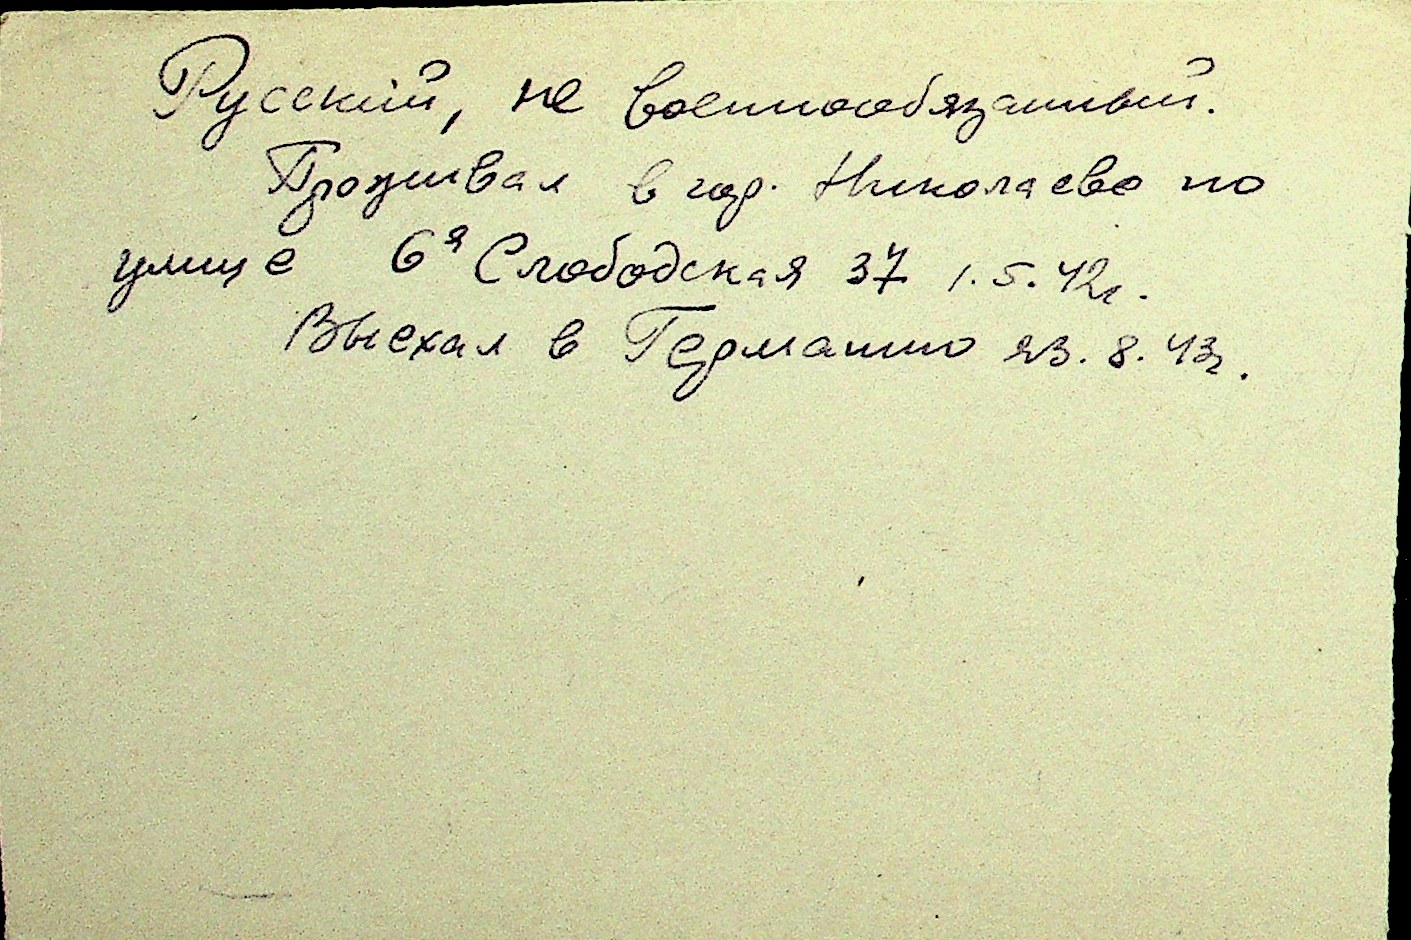 Русский, не военнообязанный.
Проживал в гор. Николаеве по
улице 6я Слободская 37 1.5.42г.
Выехал в Германию 23.8.43г.